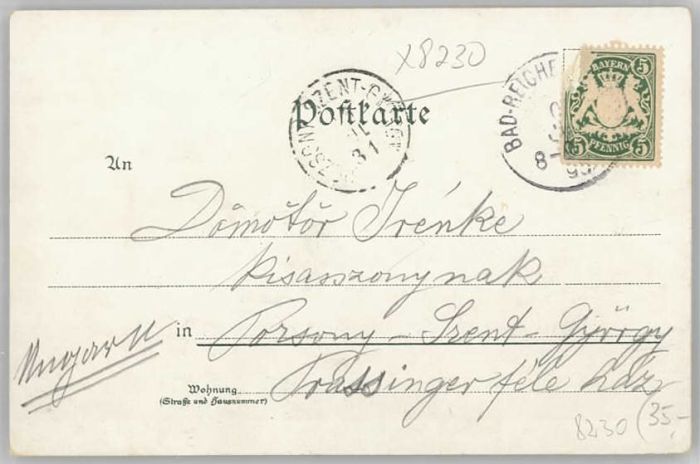 x8230
BAYERN
5 5
PFENNIG
BAD-REICHE
8-
Postkarte
SZENT-GY
31
An
Dömötör Irénke
kisasszonynak
Ungarn
in Pozsony-Szent-György
Wohnung
(Straße und Hausnummer)
Prassinger féle ház
8230 (35,-